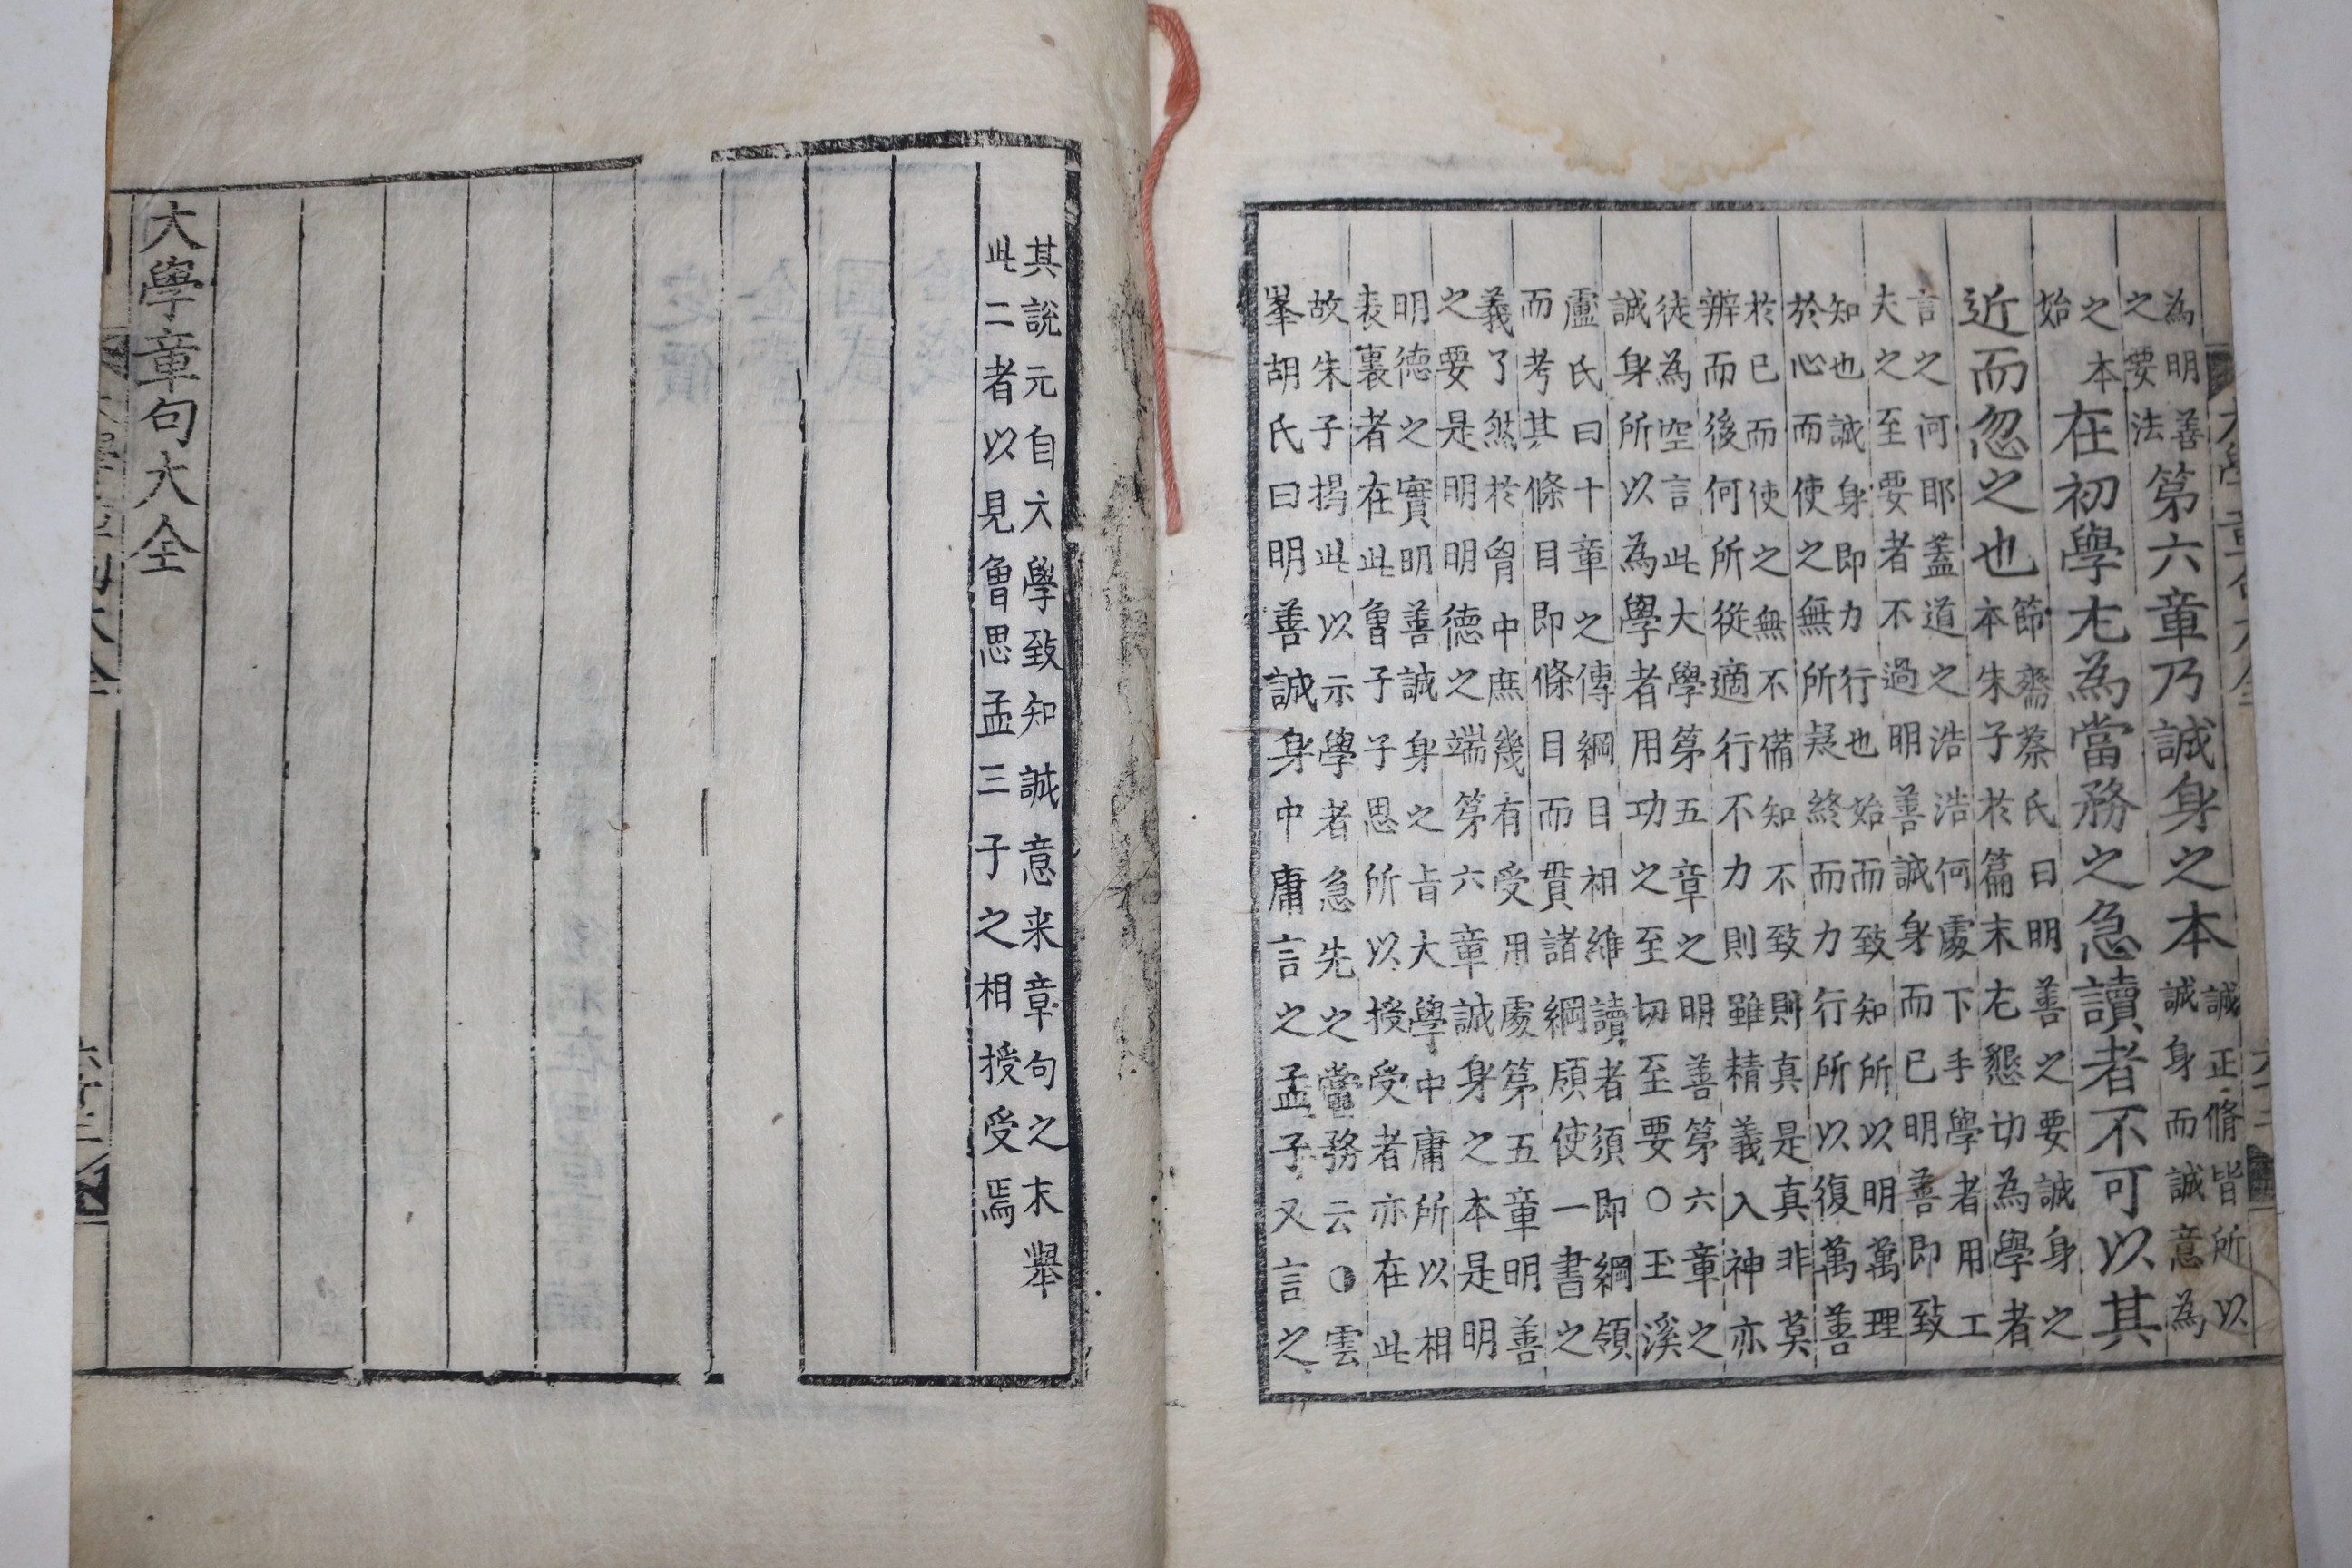 大學章句大全
為明善
之要法
第六章乃誠身之本
誠正脩皆所以
誠身而誠意為
之本
始
在初學尤為當務之急讀者不可以其
近而忽之也
節齋蔡氏曰明善之要誠身之
本朱子於篇末尤懇切為學者
言之何耶蓋道之浩浩何處下手學者用工
夫之至要者不過明善誠身而已明善即致
知也誠身即力行也始而致知所以明萬理
於心而使之無所疑終而力行所以復萬善
於已而使之無不備知不致則真是真非莫
辨而後何所從適行不力則雖精義入神亦
徒為空言此大學第五章之明善第六章之
誠身所以為學者用功之至切至要○玉溪
盧氏曰十章之傳綱目相維讀者須即綱領
而考其條目即條目而貫諸綱領使一書之
義了然於胷中庶幾有受用處第五章明善
之要是明明德之端第六章誠身之本是明
明德之實明善誠身之旨大學中庸所以相
表裏者在此曾子子思所以授受者亦在此
故朱子揭此以示學者急先之當務云○雲
峯胡氏曰明善誠身中庸言之孟子又言之
其說元自大學致知誠意来章句之末舉
此二者以見曾思孟三子之相授受焉
大學章句大全